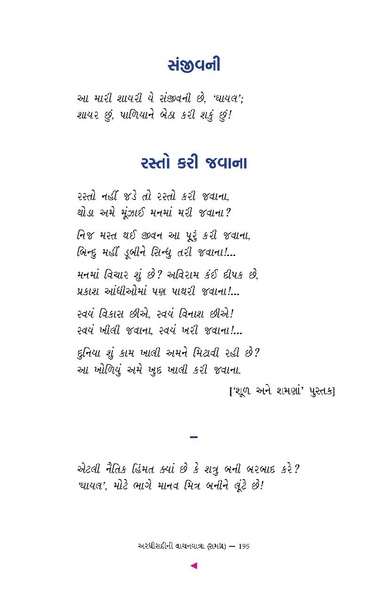 સંજીવની
આ મારી શાયરી યે સંજીવની છે, 'ઘાયલ';
શાયર છું, પાળિયાને બેઠા કરી શકું છું!
રસ્તો કરી જવાના
રસ્તો નહીં જડે તો રસ્તો કરી જવાના,
થોડા અમે મૂંઝાઈ મનમાં મરી જવાના?
નિજ મસ્ત થઈ જીવન આ પૂરું કરી જવાના,
બિન્દુ મહીં ડૂબીને સિન્ધુ તરી જવાના!...
મનમાં વિચાર શું છે? અવિરામ કંઈ દીપક છે,
પ્રકાશ આંધીઓમાં પણ પાથરી જવાના!...
સ્વયં વિકાસ છીએ, સ્વયં વિનાશ છીએ!
સ્વયં ખીલી જવાના, સ્વયં ખરી જવાના!...
દુનિયા શું કામ ખાલી અમને મિટાવી રહી છે?
આ ખોળિયું અમે ખુદ ખાલી કરી જવાના.
['શૂળ અને શમણાં' પુસ્તક]
–
એટલી નૈતિક હિંમત ક્યાં છે કે શત્રુ બની બરબાદ કરે?
'ઘાયલ', મોટે ભાગે માનવ મિત્ર બનીને લૂંટે છે!
અરધીસદીની વાચનયાત્રા (સમગ્ર) — 195